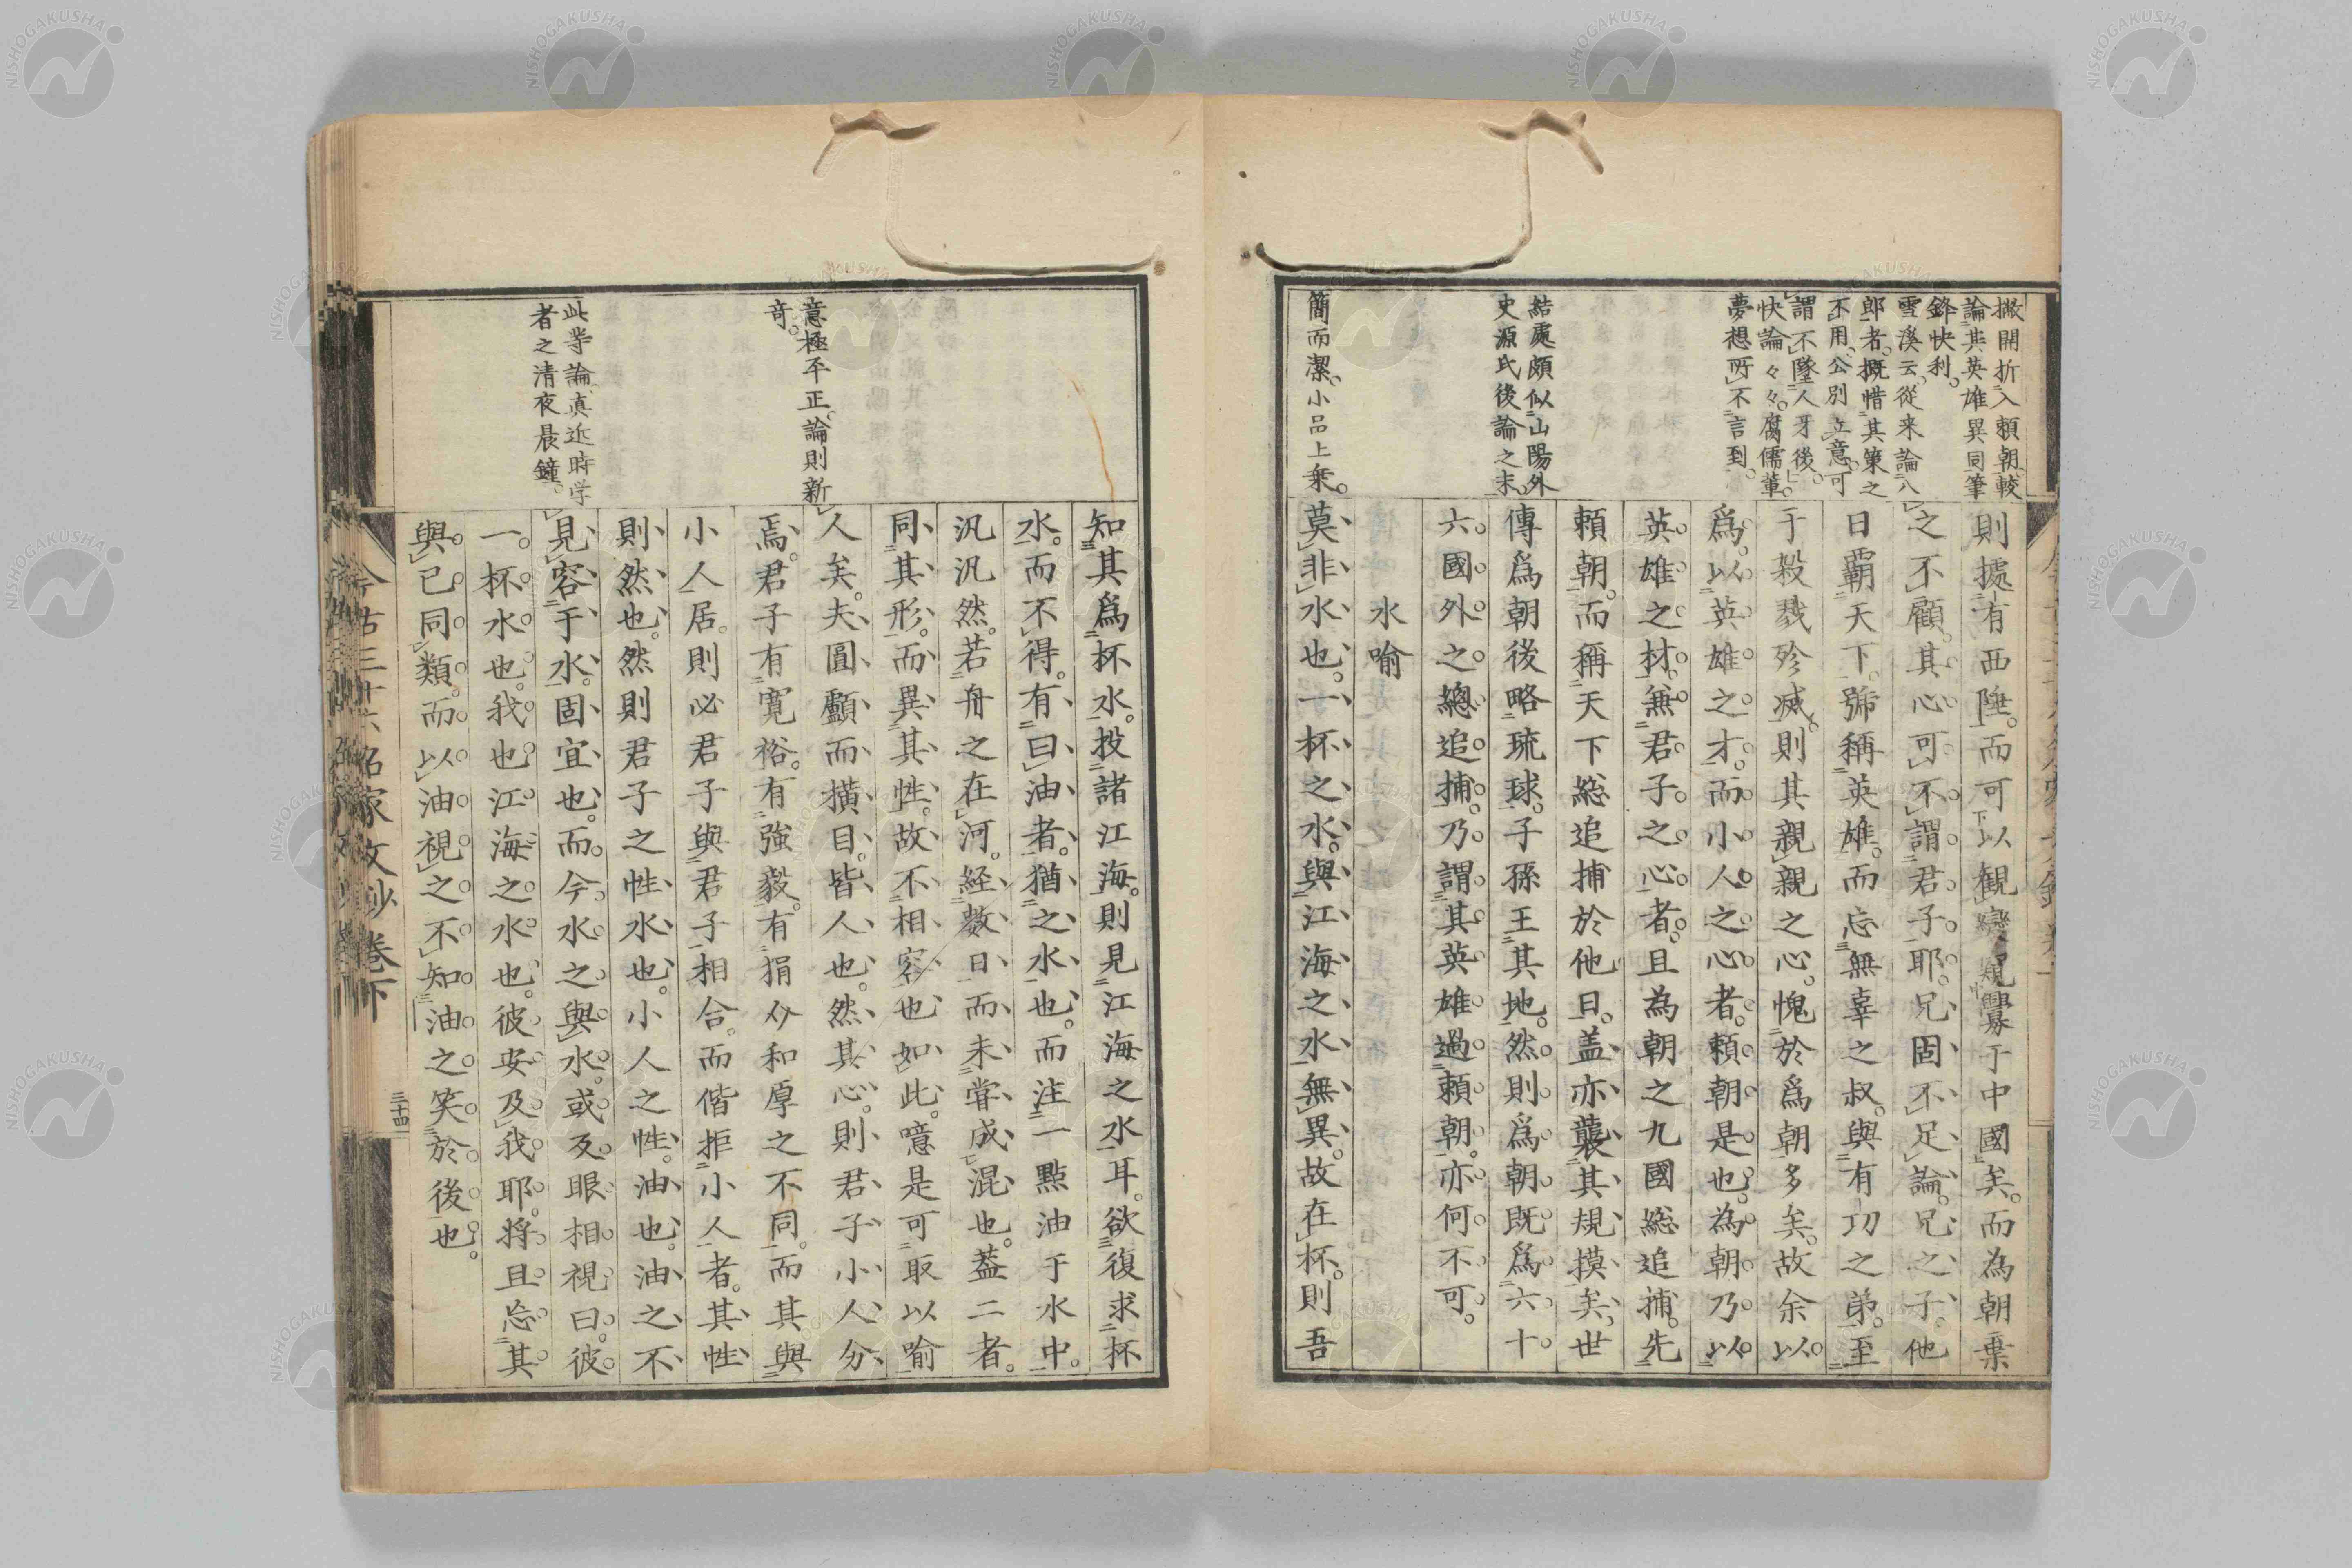 搬開折入頼朝較
論其英雄異同筆
鋒快利。
雪溪云從来論八
郎者。概惜其策之
不用。公別立意。可
謂不墜人牙後。
快論々々。腐儒輩
夢想所不言到。
結處頗似山陽外
史源氏後論之末。
簡而潔。小品上乗。
則據有西陲。而可以観變覬釁于中國矣。而為朝棄
之不顧。其心可不謂君子耶。兄固不足論。兄之子。他
日覇天下。號稱英雄。而忘無辜之叔。與有功之弟。至
于殺戮殄滅。則其親親之心。愧於爲朝多矣。故余以
爲。以英雄之才。而小人之心者。頼朝是也。為朝乃以
英雄之材。無君子之心者。且為朝之九國総追捕。先
頼朝。而稱天下総追捕於他日。盖亦襲其規摸矣。世
傳爲朝後略琉球。子孫王其地。然則爲朝既爲六十
六國外之總追捕。乃謂其英雄過頼朝。亦何不可。
水喻
莫非水也。一杯之水。與江海之水無異。故在杯。則吾
意極平正。論則新
奇。
此等論。真近時学
者之清夜晨鐘。
知其爲杯水。投諸江海。則見江海之水耳。欲復求杯
水。而不得。有曰。油者。猶之水也。而注一點油于水中。
汎汎然。若舟之在河。経數日而未甞成混也。蓋二者。
同其形。而異其性。故不相容也如此。噫是可取以喻
人矣。夫圓顱而横目。皆人也。然其心。則君子小人分
焉。君子有寛裕。有強毅。有狷介和厚之不同。而其與
小人居。則必君子與君子相合。而偕拒小人者。其性
則然也。然則君子之性水也。小人之性。油也。油之不
見容于水。固宜也。而今水之與水。或反眼相視曰。彼
一杯水也。我也江海之水也。彼安及我耶。将且忘其
與已同類。而以油視之。不知油之笑於後也。
今古三十六名家文抄卷下
三十四